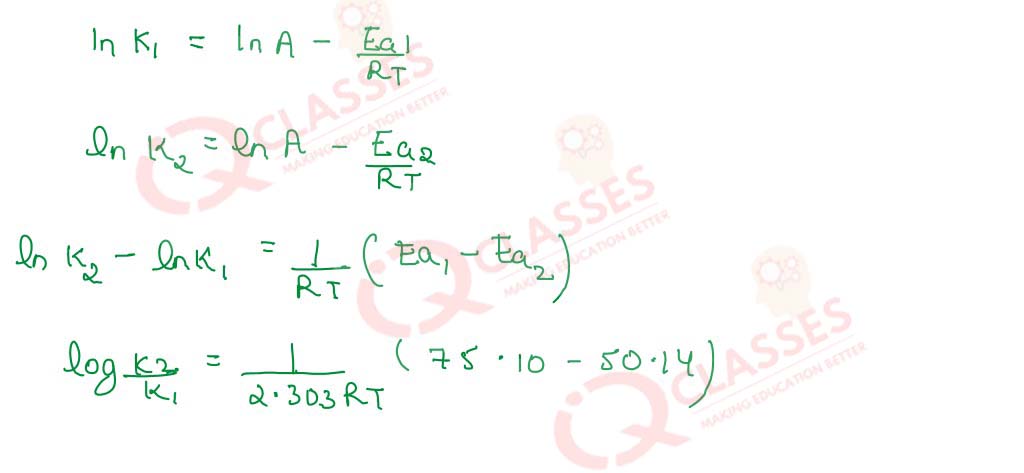 ln K₁ = ln A - Ea1/RT
ln K₂ = ln A - Ea2/RT
ln K₂ - ln K₁ = 1/RT (Ea₁ - Ea₂)
log K2/K₁ = 1/2.303RT (75.10 - 50.14)
CLASSES
MAKING EDUCATION BETTER
CLASSES
MAKING EDUCATION BETTER
CLASSES
MAKING EDUCATION BETTER